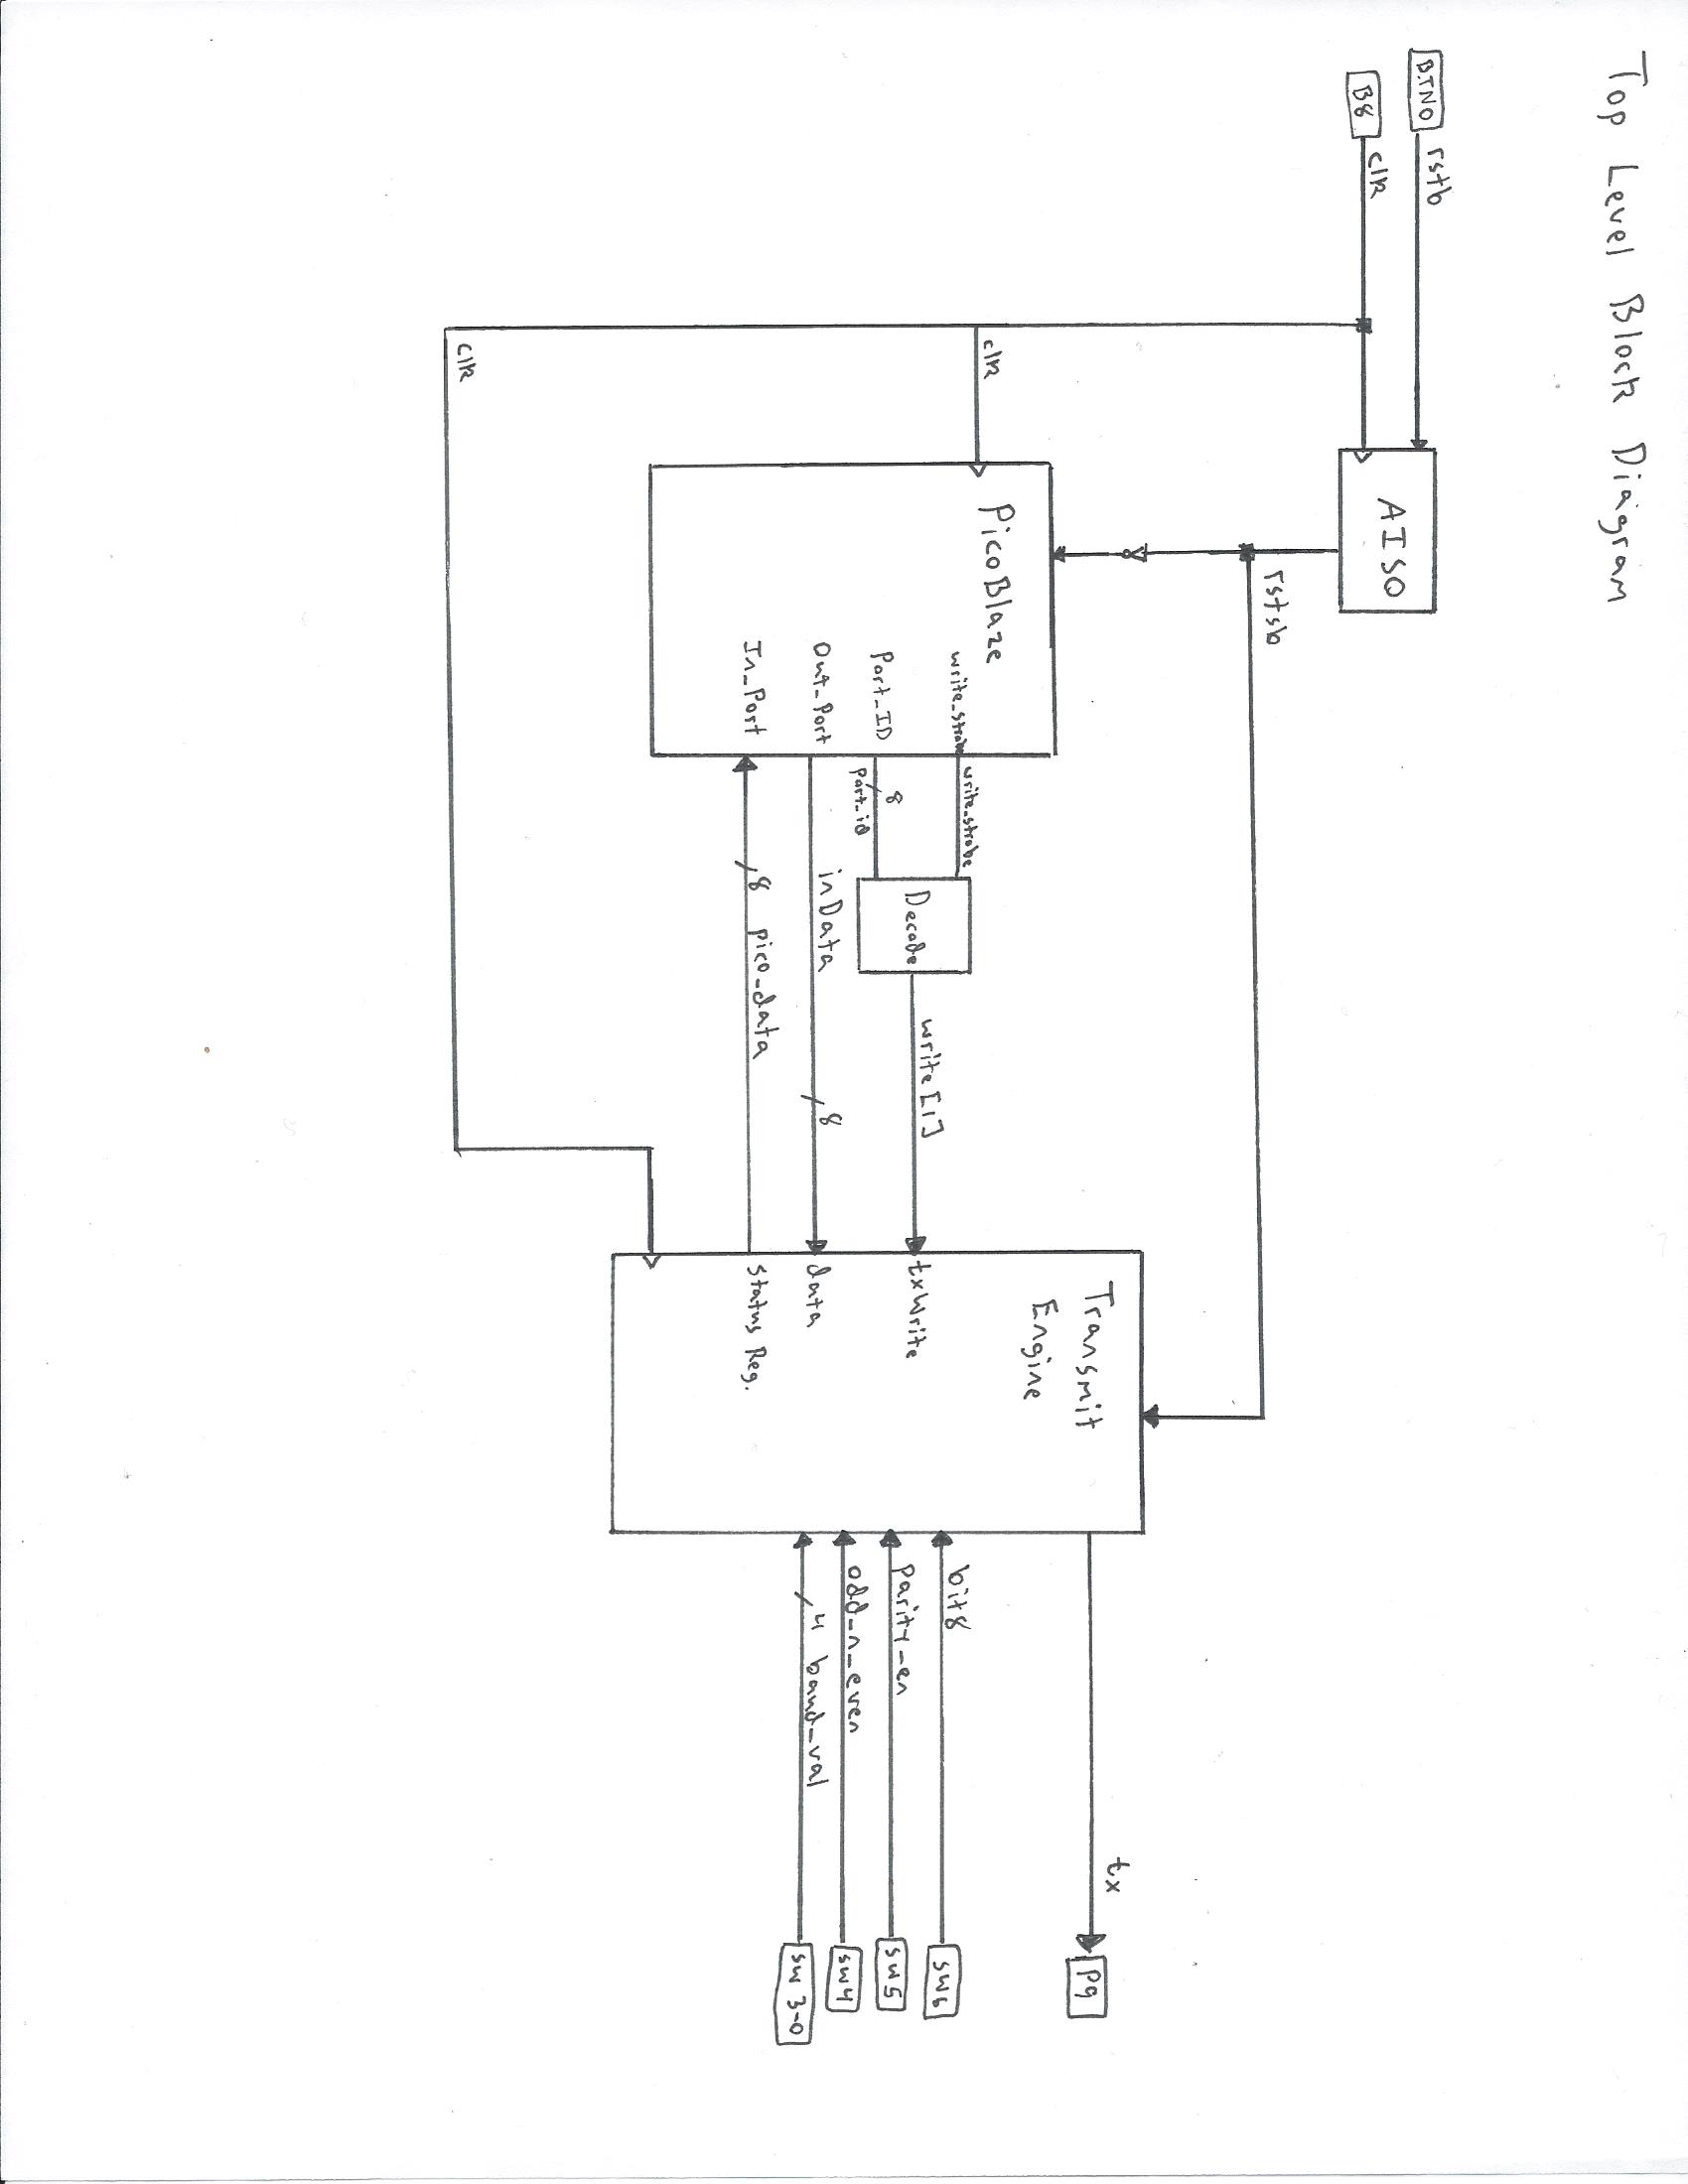 Top Level Block Diagram
BTN0
rstb
B8
clk
AISO
rstsb
clk
clk
PicoBlaze
write_strobe
Port_ID
Out_Port
In_Port
write_strobe
8
port_id
Decode
write[1]
inData
8
8 pico_data
Transmit
Engine
txWrite
data
Status Reg.
tx
P9
bit8
sw6
parity_en
sw5
odd_n_even
sw4
4 baud_val
sw 3-0